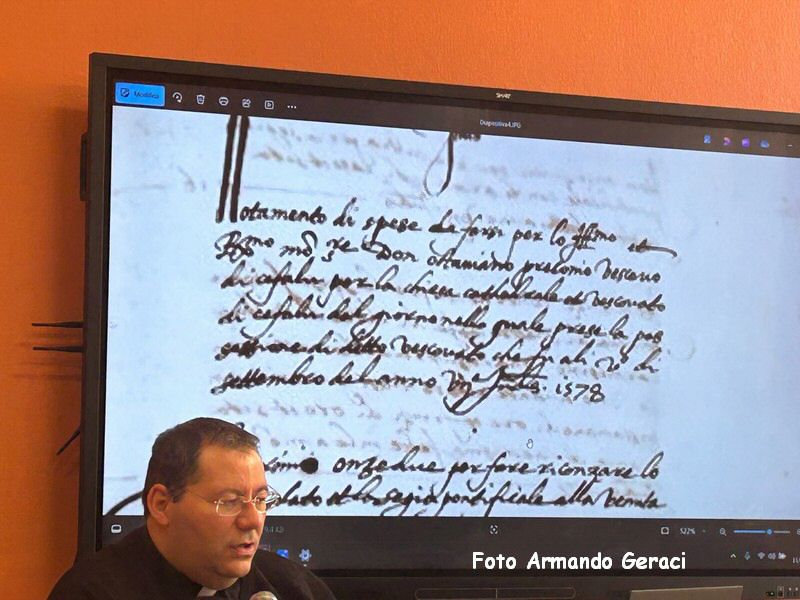 SMART
Modifica
Diapositiva4.JPG
Notamento di spese da farsi per lo Ill.mo et
R.mo mo.re Don ottaviano preconio Vescovo
di cefalu per la chiesa cathedrale et vescovato
di cefalu dal giorno nello quale prese la pos
sessione di ditto Vescovato che fu ali v di
settembro del anno Ind. 1578
onze due per fare riconzare lo
et la segia pontificale alla venuta
522%
Foto Armando Geraci